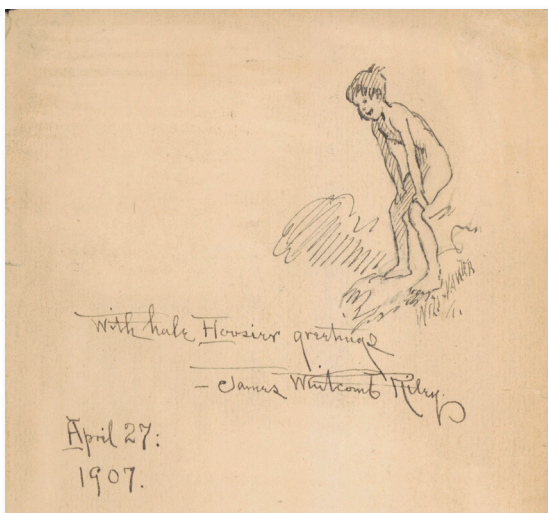 WILL VAWTER
With hale Hoosier greetings
– James Whitcomb Riley.
April 27:
1907.